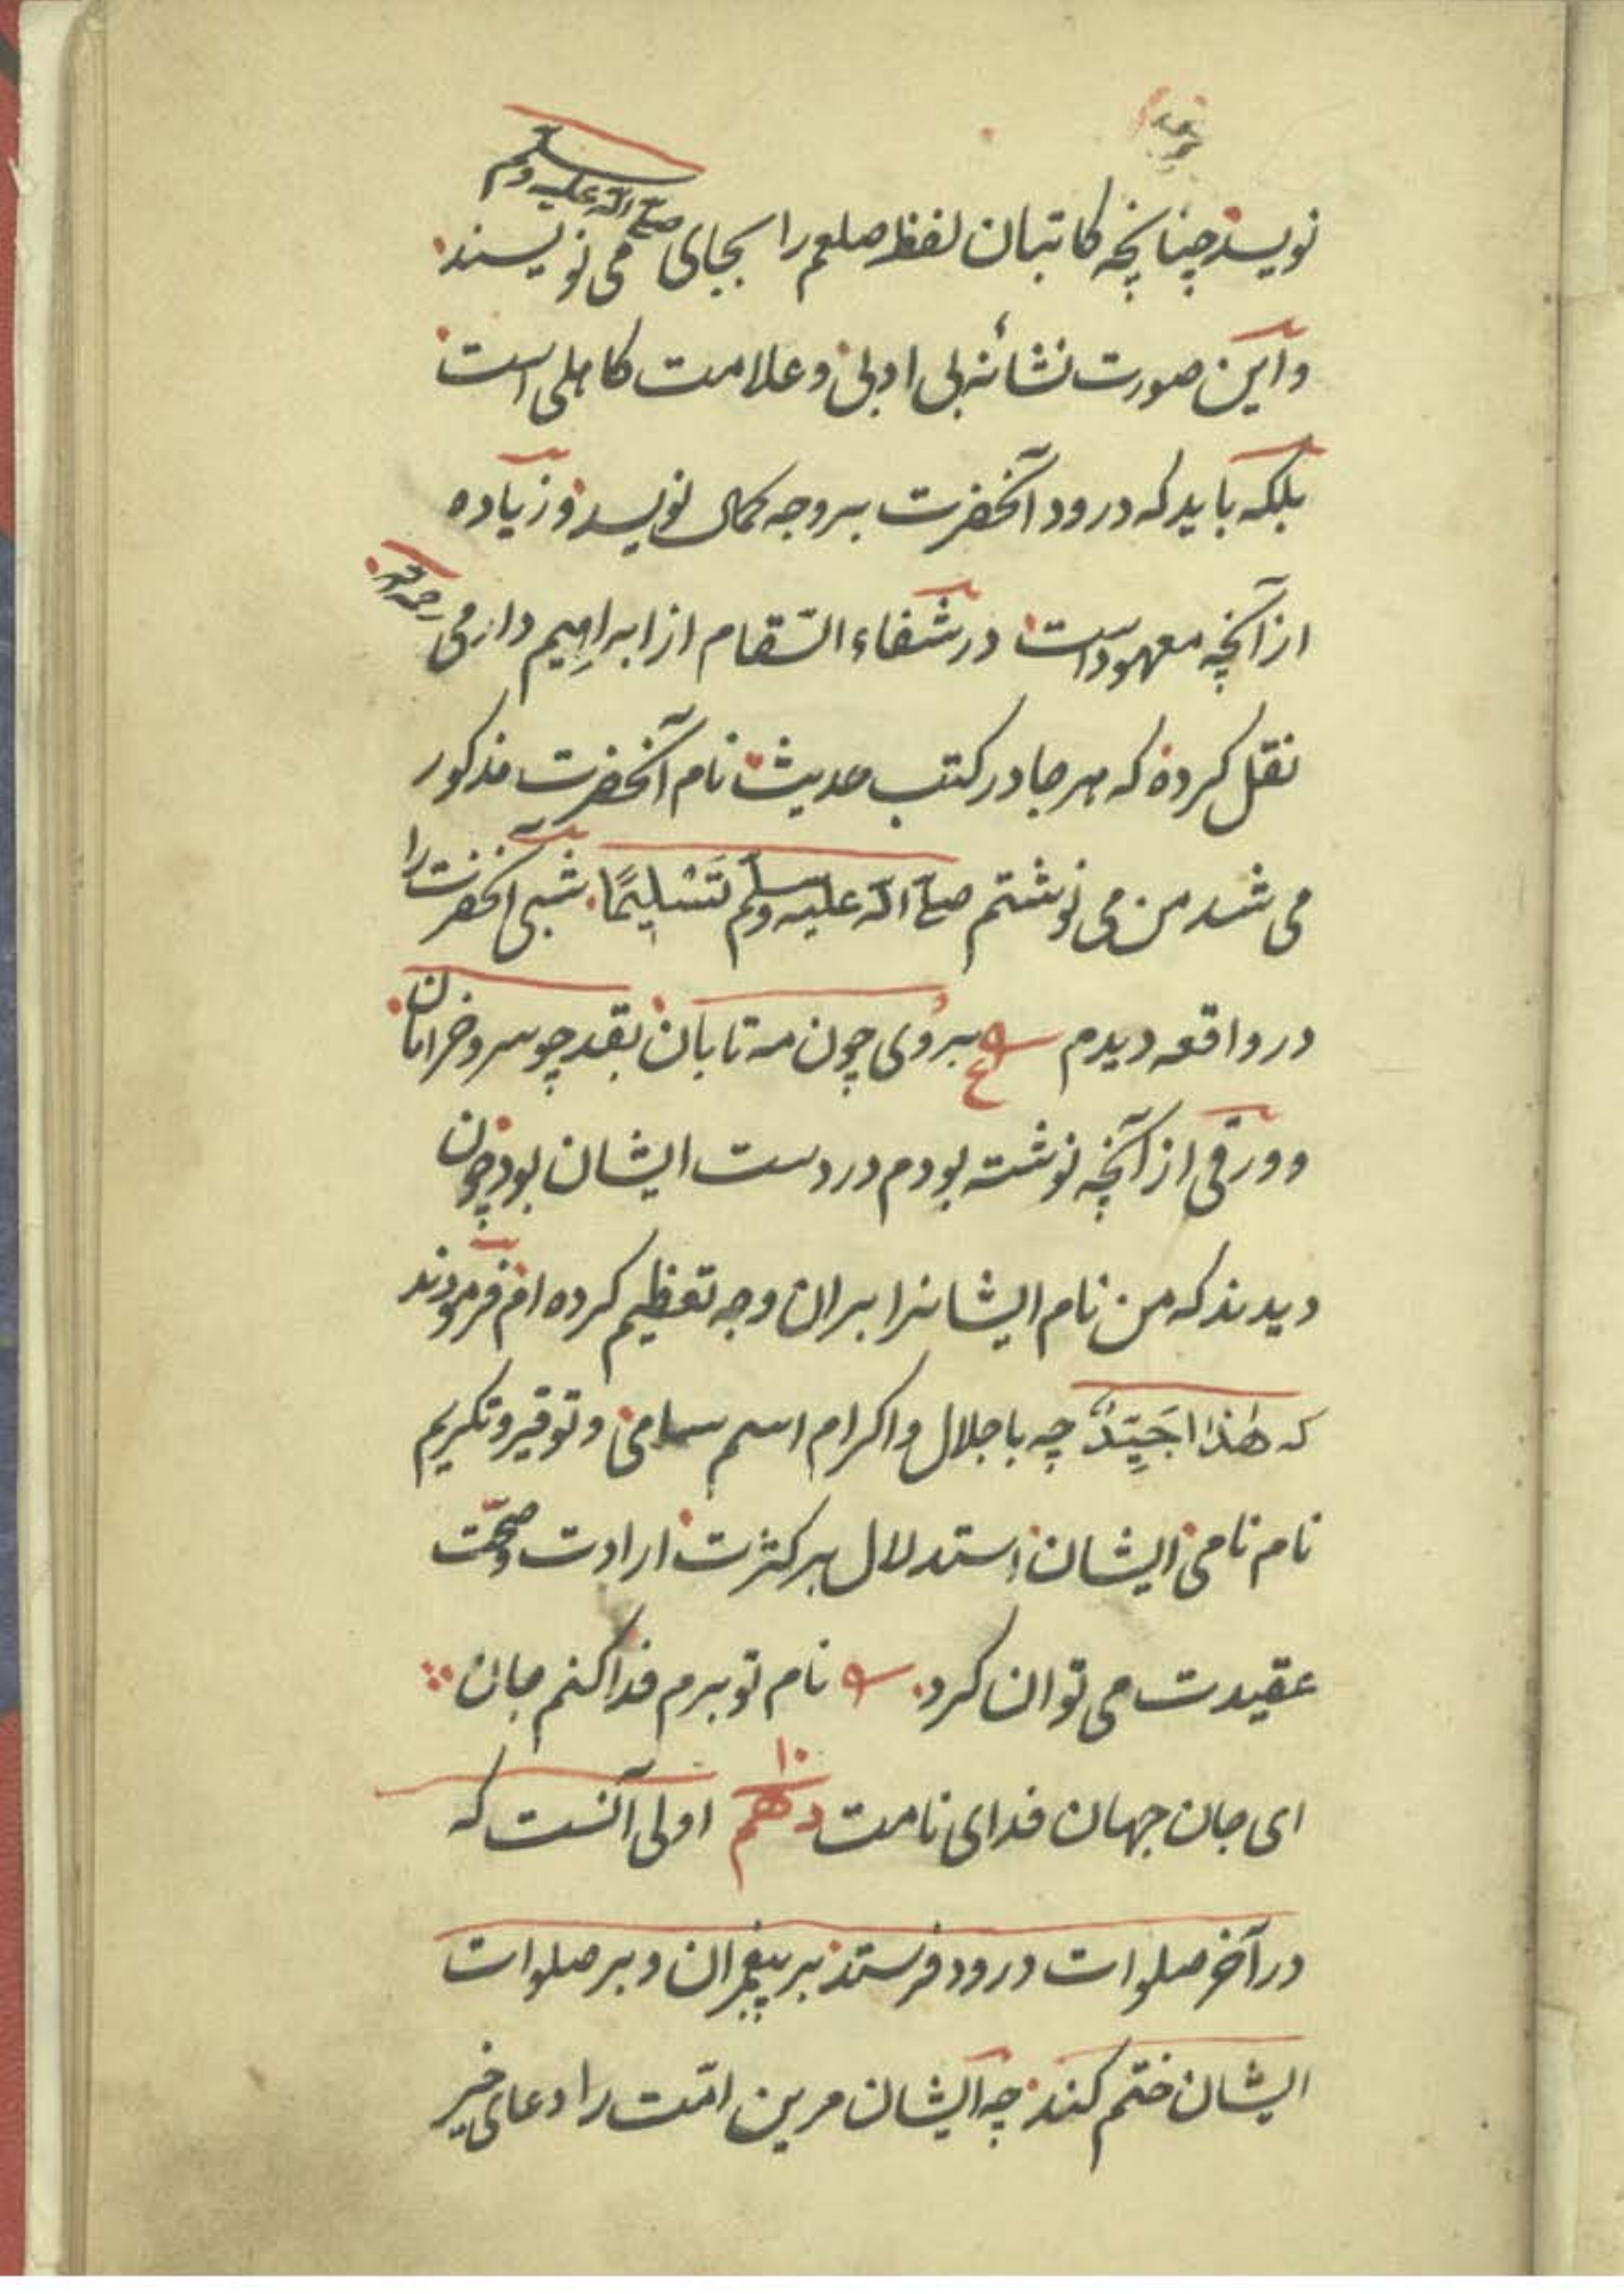 نویسد چنانچه کاتبان لفظ صلعم را بجای صلی الله علیه وسلم می نویسند
و این صورت نشانهٔ بی ادبی و علامت کاهلی است
بلکه باید که درود آنحضرت بروجه کمال نویسد و زیاده
از آنچه معهود است در شفاء السقام از ابراهیم دارمی رحمه الله
نقل کرده که هر جا در کتب حدیث نام آنحضرت مذکور
می شد من می نوشتم صلی الله علیه وسلم تَسْلِیمًا شبی آنحضرت را
در واقعه دیدم ع بروی چون مه تابان بقد چو سرو خرامان
و ورقی از آنچه نوشته بودم در دست ایشان بود چون
دیدند که من نام ایشانرا بران وجه تعظیم کرده ام فرمودند
که هٰذا جَیِّدٌ چه باجلال و اکرام اسم سامی و توقیر و تکریم
نام نامی ایشان استدلال بر کثرت ارادت و صحّت
عقیدت می توان کرد نام تو برم فدا کنم جان
ای جان جهان فدای نامت دهم اولی آنست که
در آخر صلوات درود فرستد بر پیغمبران و بر صلوات
ایشان ختم کند چه ایشان مرین امّت را دعای خیر